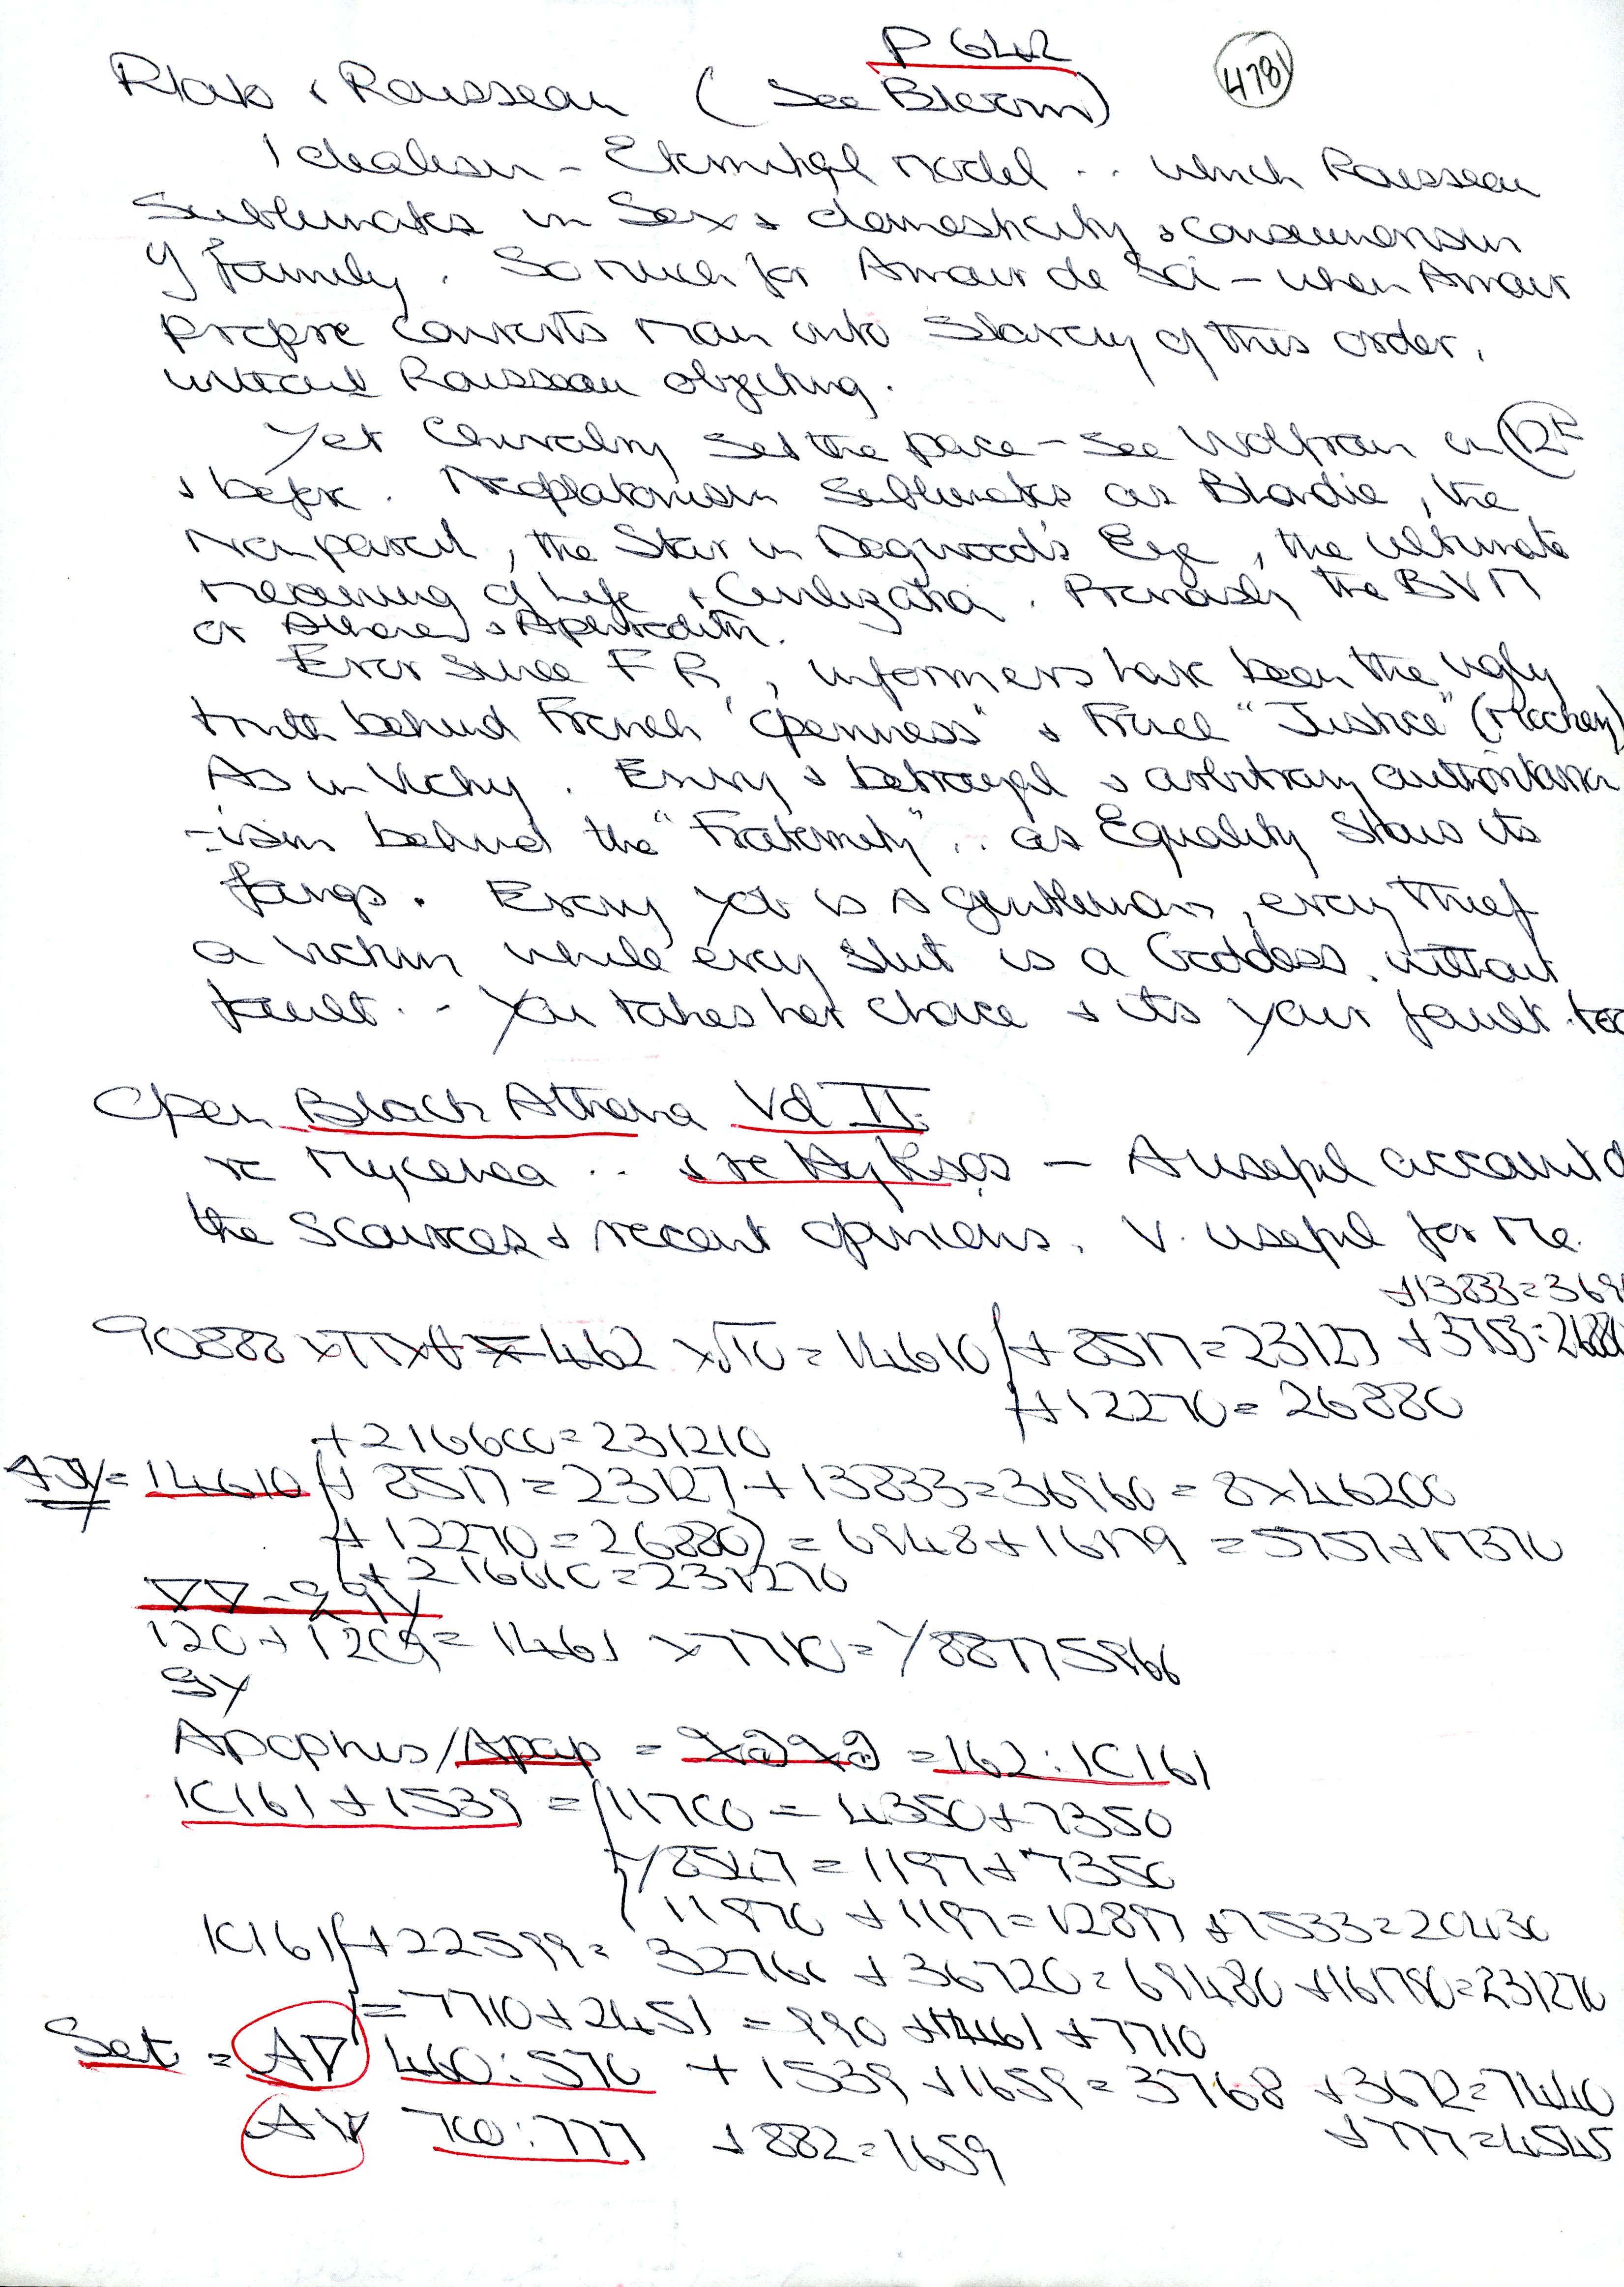 P 642
478
Plato & Rousseau ( See Bloom)
Idealism - Eternal Model .. which Rousseau
Sublimates in Sex & domesticity & consumerism
of family. So much for Amour de Soi - when Amour
Propre converts Man into Slavery of this order,
without Rousseau objecting.
Yet Chivalry set the pace - See Wolfram in 12th
& before. Neoplatonism sublimates as Blondie, the
Nonpareil, the Star in Dagwood's Eye, the ultimate
Meaning of Life & Civilization. Previously the BVM
or Athena & Aphrodite.
Ever since FR, informers have been the ugly
truth behind French "openness" & French "Justice"
As in Vichy. Envy & betrayal & arbitrary authoritarian
-ism behind the "Fraternity".. as Equality shows its
fangs. Every yob is a gentleman, every thief
a victim while every slut is a Goddess without
fault.. You takes her choice & its your fault too
Open Black Athena Vol II.
re Mycenea .. & re Hyksos - A useful account of
the Sources & recent opinions. V. useful for Me.
+13833=369
90888 =462 x√10=14610 + 8517=23127 +3753=2688
+12270=26880
+216600=231210
=14610 + 8517=23127+13833=36960=8x46200
+12270=26880) =6948+16179 =5757+17370
120+1209=1461 x7710=
9Y
Apophis/Apop = =162:10161
10161+1539=11700=4350+7350
8547=1197+7350
11970 +1197=12897 +7533=20430
10161+22599=32760 +36720=69480 +161790=231270
=7710+2451=990 +1461+7710
Set = 460:570 +1539+1659=3768 +3672=7440
700:777 +882=1659 +777=4545